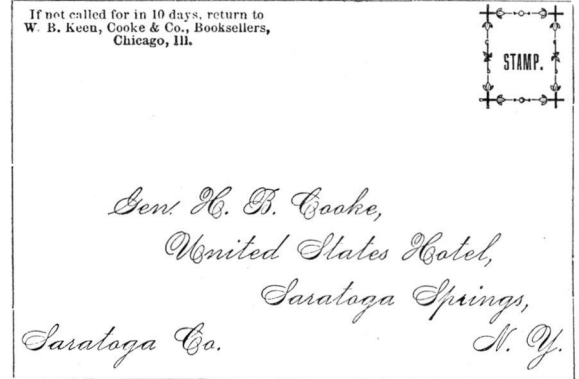 If not called for in 10 days, return to
W. B. Keen, Cooke & Co., Booksellers,
Chicago, Ill.
STAMP.
Gen. H. B. Cooke,
United States Hotel,
Saratoga Springs,
Saratoga Co. N. Y.